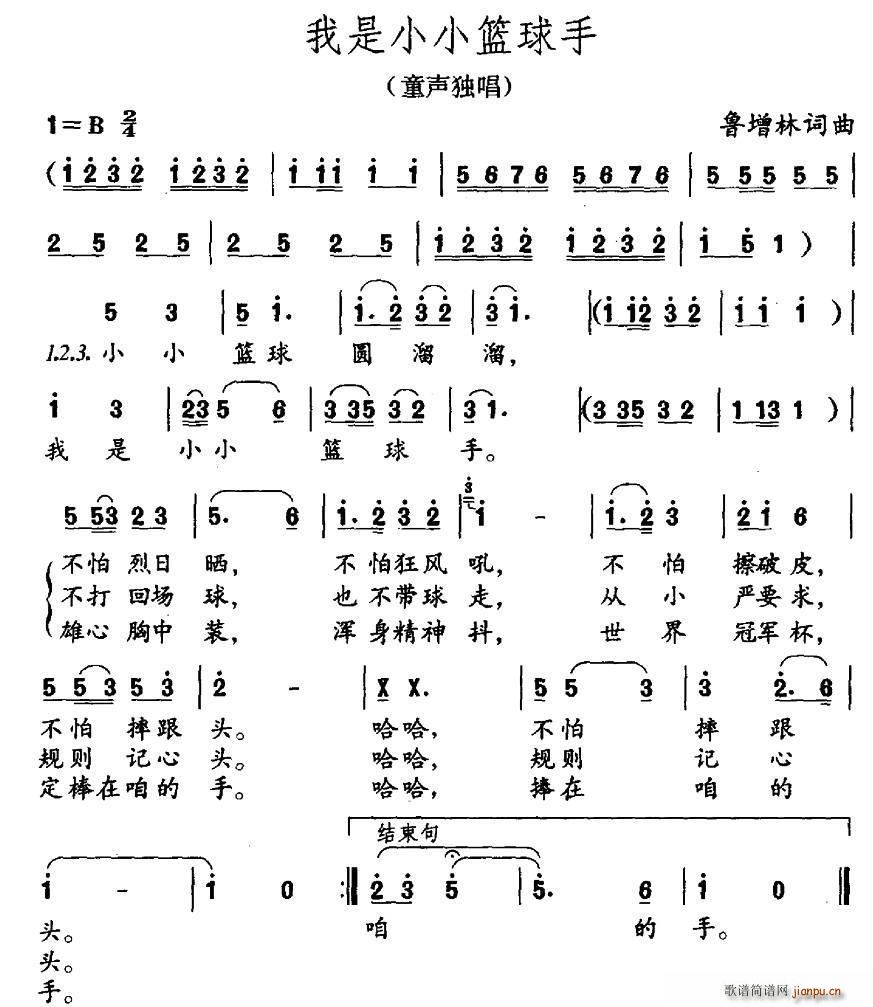 我是小小篮球手
（童声独唱）
1=B 2/4
鲁增林词曲
(1232 1232 | 1 11 1 1 | 5676 5676 | 5 55 5 5 |
2 5 2 5 | 2 5 2 5 | 1232 1232 | 1 5 1 ) |
5 3 | 5 1. | 1.2 32 | 31. |(1 12 32 | 11 1 ) |
1.2.3. 小 小 篮球 圆 溜 溜，
1 3 | 23 5 6 | 3 35 32 | 31. |(3 35 32 | 1 13 1 ) |
我 是 小小 篮 球 手。
5 53 23 | 5. 6 | 1.2 32 | 3 1 - | 1.2 3 | 21 6 |
不怕 烈日 晒， 不怕狂风 吼， 不 怕 擦破皮，
不打 回场 球， 也不带球 走， 从 小 严要求，
雄心 胸中 装， 浑身精神 抖， 世 界 冠军杯，
5 53 53 | 2 - | X X. | 5 5 3 | 3 2. 6 |
不怕 摔跟 头。 哈哈， 不怕 摔 跟
规则 记心 头。 哈哈， 规则 记 心
定棒在咱的 手。 哈哈， 捧在 咱 的
结束句
1 - | 1 0 :‖ 23 5 | 5. 6 | 1 0 ‖
头。 咱 的 手。
头。
手。
歌谱简谱网 jianpu.cn